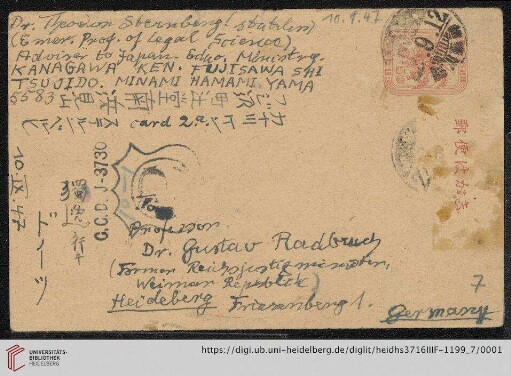 10.9.47
Dr. Theodor Sternberg (stateless)
(Emer. Prof. of Legal Science),
Adviser to Japan. Educ. Ministry.
KANAGAWA KEN. FUJISAWA SHI
TSUJIDO. MINAMI HAMAMI YAMA
5583
card 2.
郵便はがき
10 IX 47
ドイツ
C.C.D. J-3730
To
Professor
Dr. Gustav Radbruch
(Former Reichsjustizminister,
Weimar Republik)
Heidelberg Friesenberg 1.
Germany
7
UNIVERSITÄTS-
BIBLIOTHEK
HEIDELBERG
https://digi.ub.uni-heidelberg.de/diglit/heidhs3716IIIF-1199_7/0001